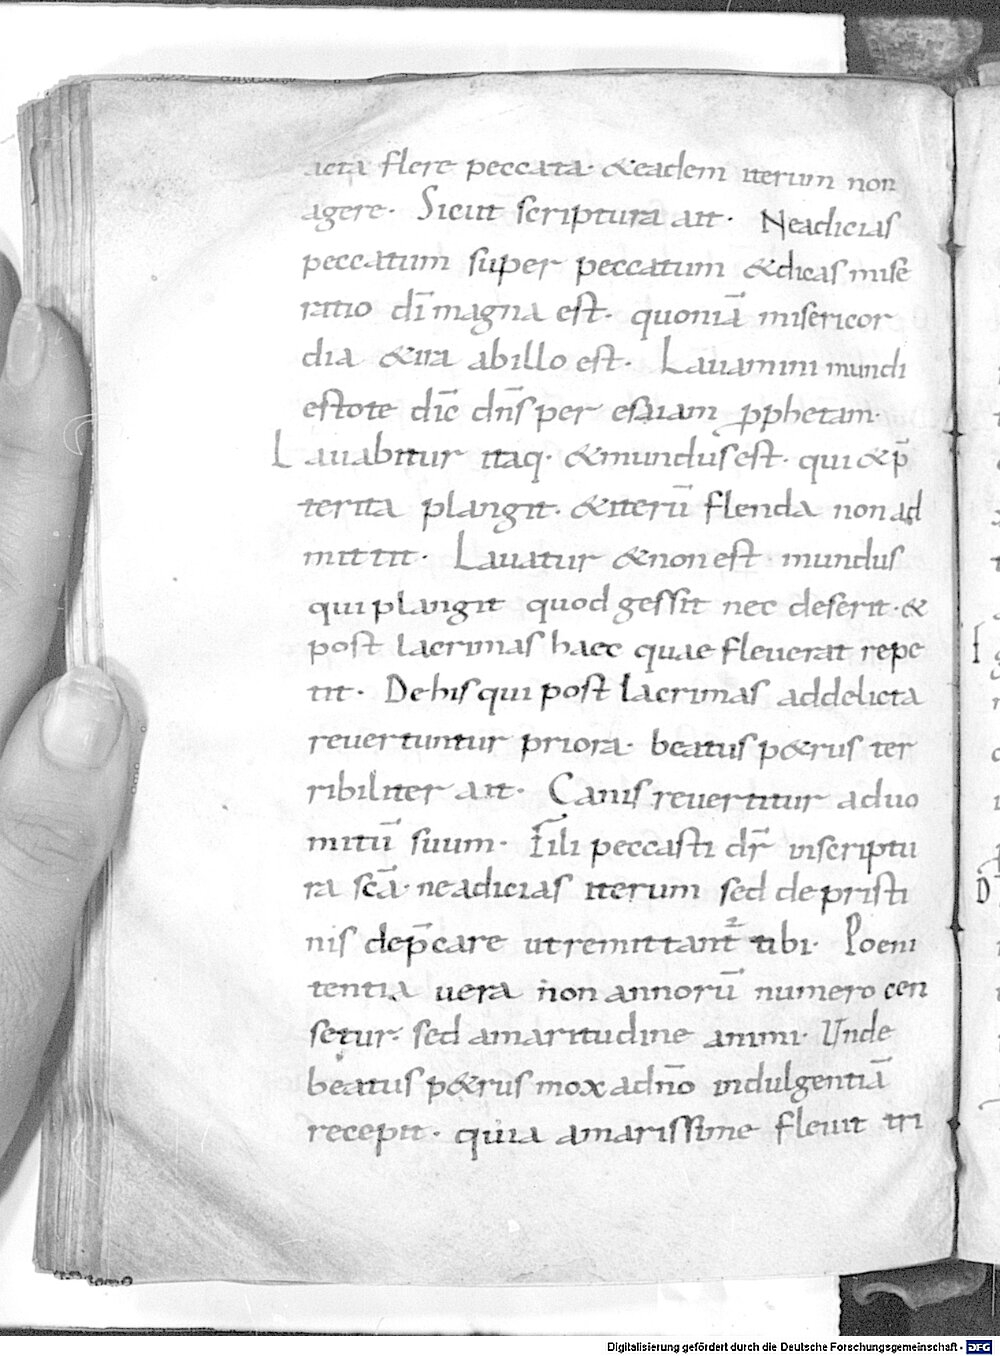 acta flere peccata· & eadem iterum non
agere· Sicut scriptura ait· Neadicias
peccatum super peccatum &dicas mise
ratio dī magna est· quoniā misericor
dia &ira abillo est· Lauamini mundi
estote dic̄ dn̄s per esaiam ꝓphetam·
Lauabitur itaq· &mundus est· qui &p̄
terita plangit· &iterū flenda non ad
mittit· Lauatur &non est mundus
qui plangit quod gessit nec deserit· &
post lacrimas haec quae fleuerat repe
tit· De his qui post lacrimas addelicta
reuertuntur priora· beatus p&rus ter
ribiliter ait· Canis reuertitur aduo
mitū suum· Fili peccasti dr̄ inscriptu
ra scā· neadicias iterum sed de pristi
nis dep̄care utremittant̄ tibi· Poeni
tentia uera non annorū numero cen
setur· sed amaritudine animi· Unde
beatus p&rus mox adn̄o indulgentiā
recepit· quia amarissime fleuit tri
Digitalisierung gefördert durch die Deutsche Forschungsgemeinschaft - DFG